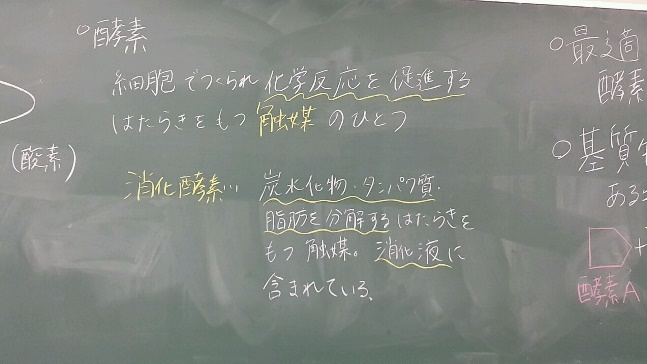 ○酵素
細胞でつくられ化学反応を促進する
はたらきをもつ触媒のひとつ
(酸素)
消化酵素… 炭水化物・タンパク質・
脂肪を分解するはたらきを
もつ触媒。消化液に
含まれている。
○最適
酵素
○基質
ある
+
酵素A